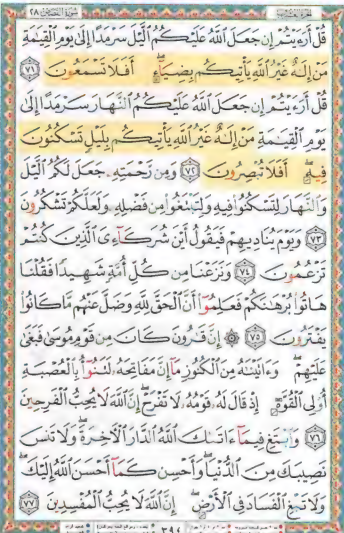 سورة القصص ٢٨
قُلْ أَرَءَيْتُمْ إِن جَعَلَ ٱللَّهُ عَلَيْكُمُ ٱلَّيْلَ سَرْمَدًا إِلَىٰ يَوْمِ ٱلْقِيَٰمَةِ
مَنْ إِلَٰهٌ غَيْرُ ٱللَّهِ يَأْتِيكُم بِضِيَآءٍ ۖ أَفَلَا تَسْمَعُونَ ٧١
قُلْ أَرَءَيْتُمْ إِن جَعَلَ ٱللَّهُ عَلَيْكُمُ ٱلنَّهَارَ سَرْمَدًا إِلَىٰ
يَوْمِ ٱلْقِيَٰمَةِ مَنْ إِلَٰهٌ غَيْرُ ٱللَّهِ يَأْتِيكُم بِلَيْلٍ تَسْكُنُونَ
فِيهِ ۖ أَفَلَا تُبْصِرُونَ ٧٢ وَمِن رَّحْمَتِهِۦ جَعَلَ لَكُمُ ٱلَّيْلَ
وَٱلنَّهَارَ لِتَسْكُنُوا۟ فِيهِ وَلِتَبْتَغُوا۟ مِن فَضْلِهِۦ وَلَعَلَّكُمْ تَشْكُرُونَ
٧٣ وَيَوْمَ يُنَادِيهِمْ فَيَقُولُ أَيْنَ شُرَكَآءِىَ ٱلَّذِينَ كُنتُمْ
تَزْعُمُونَ ٧٤ وَنَزَعْنَا مِن كُلِّ أُمَّةٍ شَهِيدًا فَقُلْنَا
هَاتُوا۟ بُرْهَٰنَكُمْ فَعَلِمُوٓا۟ أَنَّ ٱلْحَقَّ لِلَّهِ وَضَلَّ عَنْهُم مَّا كَانُوا۟
يَفْتَرُونَ ٧٥ ۞ إِنَّ قَٰرُونَ كَانَ مِن قَوْمِ مُوسَىٰ فَبَغَىٰ
عَلَيْهِمْ ۖ وَءَاتَيْنَٰهُ مِنَ ٱلْكُنُوزِ مَآ إِنَّ مَفَاتِحَهُۥ لَتَنُوٓأُ بِٱلْعُصْبَةِ
أُو۟لِى ٱلْقُوَّةِ إِذْ قَالَ لَهُۥ قَوْمُهُۥ لَا تَفْرَحْ ۖ إِنَّ ٱللَّهَ لَا يُحِبُّ ٱلْفَرِحِينَ
٧٦ وَٱبْتَغِ فِيمَآ ءَاتَىٰكَ ٱللَّهُ ٱلدَّارَ ٱلْءَاخِرَةَ ۖ وَلَا تَنسَ
نَصِيبَكَ مِنَ ٱلدُّنْيَا ۖ وَأَحْسِن كَمَآ أَحْسَنَ ٱللَّهُ إِلَيْكَ ۖ
وَلَا تَبْغِ ٱلْفَسَادَ فِى ٱلْأَرْضِ ۖ إِنَّ ٱللَّهَ لَا يُحِبُّ ٱلْمُفْسِدِينَ ٧٧